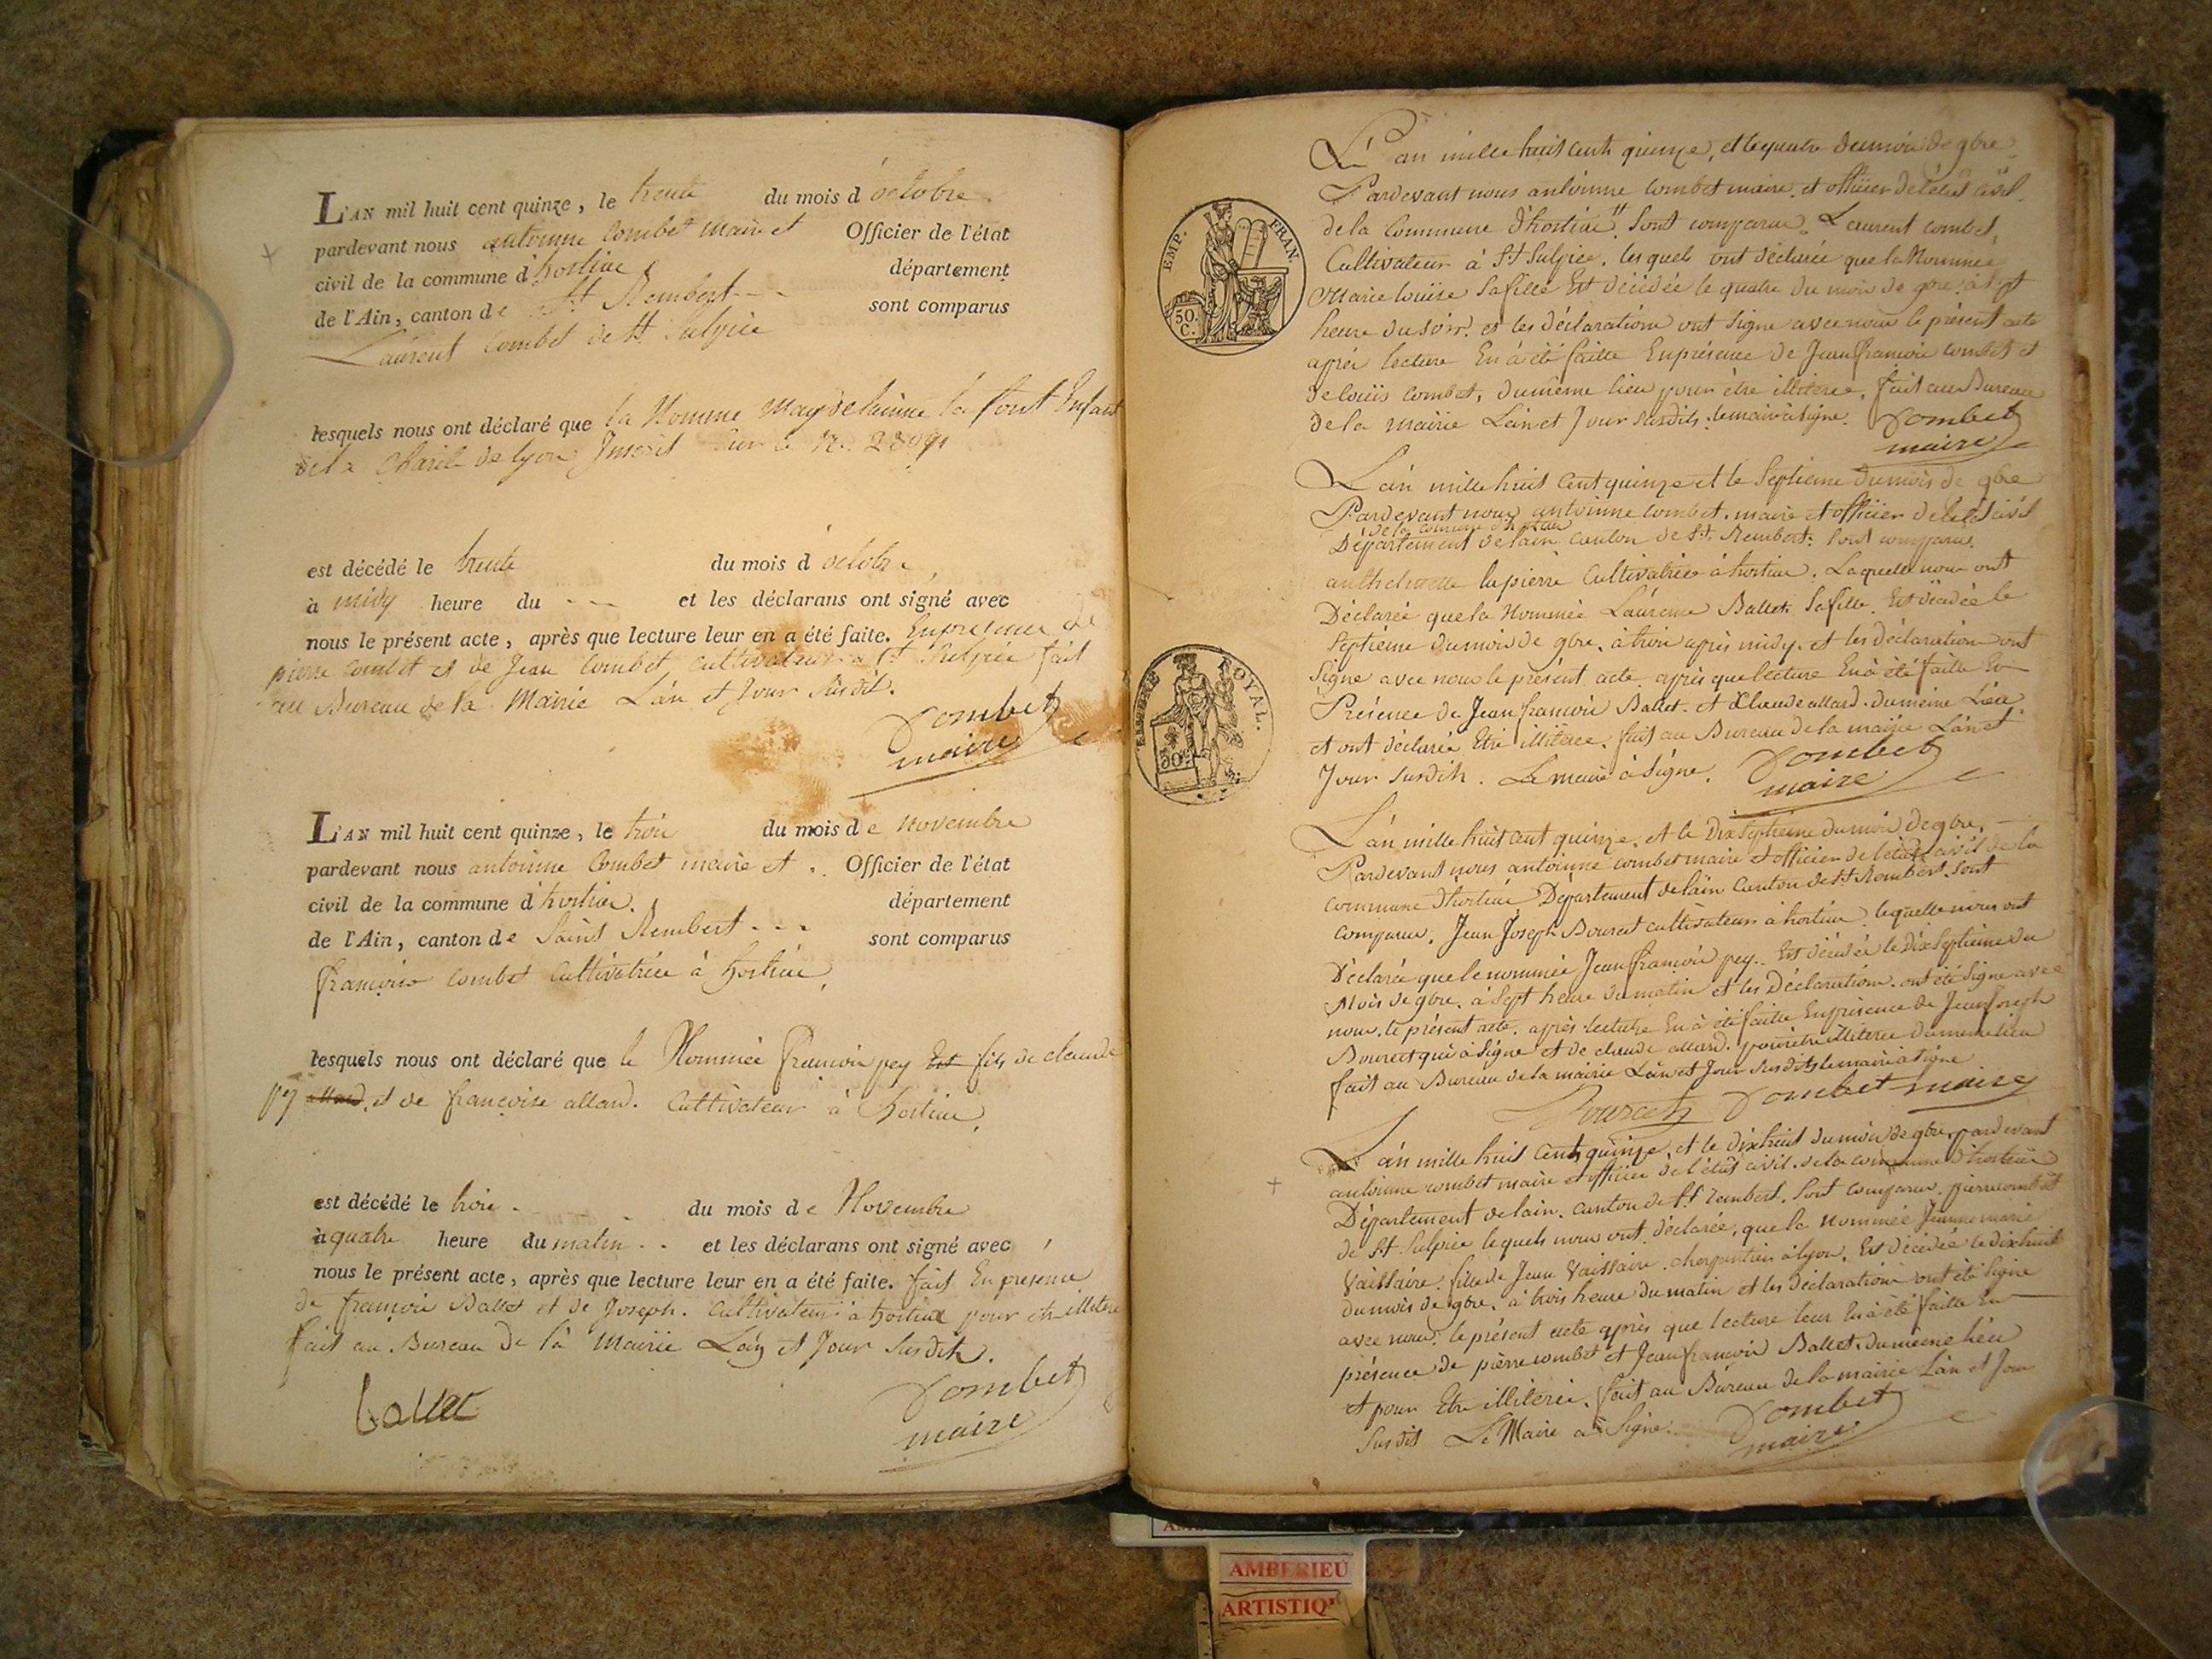 L'AN mil huit cent quinze, le trente du mois d'octobre
pardevant nous antoinne Combet maire et Officier de l'état
civil de la commune d'hostiac département
de l'Ain, canton de St Rembert sont comparus
Laurent Combet de St Sulpice
lesquels nous ont déclaré que la Nomme Magdelainne la font Enfant
de la Charité de lyon Inscrit sur le N.
est décédé le trente du mois d octobre
à midy heure du - - - et les déclarans ont signé avec
nous le présent acte, après que lecture leur en a été faite. En presence de
pierre Combet et de Jean Combet cultivateur a St Sulpice fait
au Bureau de la Mairie Lán et Jour Susdit.
Combet
maire
L'AN mil huit cent quinze, le trois du mois de Novembre
pardevant nous antoinne Combet maire et . Officier de l'état
civil de la commune d'hostiac. département
de l'Ain, canton de Saint Rembert - - - sont comparus
françoise Combet Cultivatrice à hostiac,
lesquels nous ont déclaré que le Nommée francois pey Est fils de claude
pey allard. et de françoise allard. Cultivateur à hostiac,
est décédé le trois du mois de Novembre
à quatre heure du matin - - et les déclarans ont signé avec
nous le présent acte, après que lecture leur en a été faite. fait En presence
de françois Ballet et de Joseph. Cultivateur à hostiac pour etre illitere
fait au Bureau de la Mairie Lán et Jour Susdits.
ballet
Combet
maire
EMP. FRAN
50.
C.
L'an mille huit cent quinze, et le quatre du mois de 9bre
Pardevant nous antoinne Combet maire et officier de l'état civil
de la Commune d'hostiac. Sont comparus Laurent Combet,
Cultivateur à St Sulpice. lesquels ont déclarée que la Nommée
Marie louise Safille Est décédée le quatre du mois de 9bre à sept
heure du soir. et les déclarations ont signe avec nous le présent acte
après lecture En à été faitte En présence de Jean françois Combet et
de louis Combet, du même lieu pour être illiterée, fait au Bureau
de la mairie Lán et Jour Susdits. le maire à signe. Combet
maire
L'án mille huit Cent quinze et le Septieme du mois de 9bre
Pardevant nous antoinne Combet. maire et officier de l'état civil
de la Commune d'hostiac
Département de lain Canton de St. Rembert. Sont comparus
anthelmette lapierre Cultivatrice à hostiac. Laquelle nous ont
Déclarée que la Nommée Laurence Ballet Safille Est décédée le
Septieme du mois de 9bre, à trois après midy. et les déclaration ont
Signe avec nous le présent acte après que lecture En à été faitte En
Présence de Jean françois Ballet. et Claude allard. du même Lieu
et ont déclarée Etre illiterée. fait au Bureau de la mairie Lán et
Jour Susdits. Le maire à Signe. Combet
maire
ROYAL.
50
L'án mille huit cent quinze. et le Dix Septieme du mois de 9bre.
Pardevant nous antoinne Combet maire et officier de l'état civil de la
commune d'hostiac Département de lain Canton de St Rembert. Sont
comparus. Jean Joseph Bourcet cultivateur à hostiac lequelle nous ont
Déclarée que le nommée Jean françois pey. Est décédée le Dix Septieme du
Mois de 9bre. à Sept heure du matin et les Déclarations. ont été Signe avec
nous. le présent acte. après lecture En à été faitte En présence de Jean Joseph
Bourcet qui à Signe et de claude allard. pour etre illiteree du meme lieu
fait au Bureau de la mairie Lán et Jour Susdits le maire à Signe
Bourcet Combet maire
L'án mille huit Cent quinze, et le dix huit du mois de 9bre, pardevant
antoinne Combet maire et officier de l'état civil. de la commune d'hostiac
Département de lain. Canton de St rembert. Sont comparus. pierre combet
de St Sulpice lequels nous ont déclarée, que la nommée Jeanne marie
Vaissaire. fille de Jean Vaissaire. charpentier à lyon. Est décédée le dix huit
du mois de 9bre. à trois heure du matin et les déclarations ont été Signe
avec nous. le présent acte après que lecture leur En à été faitte En
présence de pierre combet et Jean françois Ballet. du même lieu
et pour Etre illiterée. fait au Bureau de la mairie Lán et Jour
Susdit Le Maire a Signe. Combet
maire
AMBERIEU
ARTISTIQ